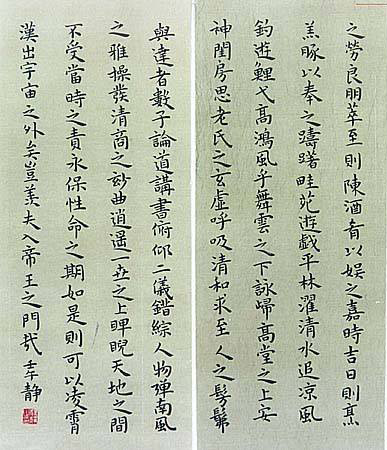 之勞良朋萃至則陳酒肴以娛之嘉時吉日則烹
羔豚以奉之躊躇畦苑遊戲平林濯清水追凉風
釣遊鯉弋高鴻風乎舞雲之下詠歸高堂之上安
神閨房思老氏之玄虛呼吸清和求至人之髣髴
與達者數子論道講書俯仰二儀錯綜人物彈南風
之雅操發清商之玅曲逍遥一世之上睥睨天地之間
不受當時之責永保性命之期如是則可以凌霄
漢出宇宙之外矣豈羨夫入帝王之門哉 李静